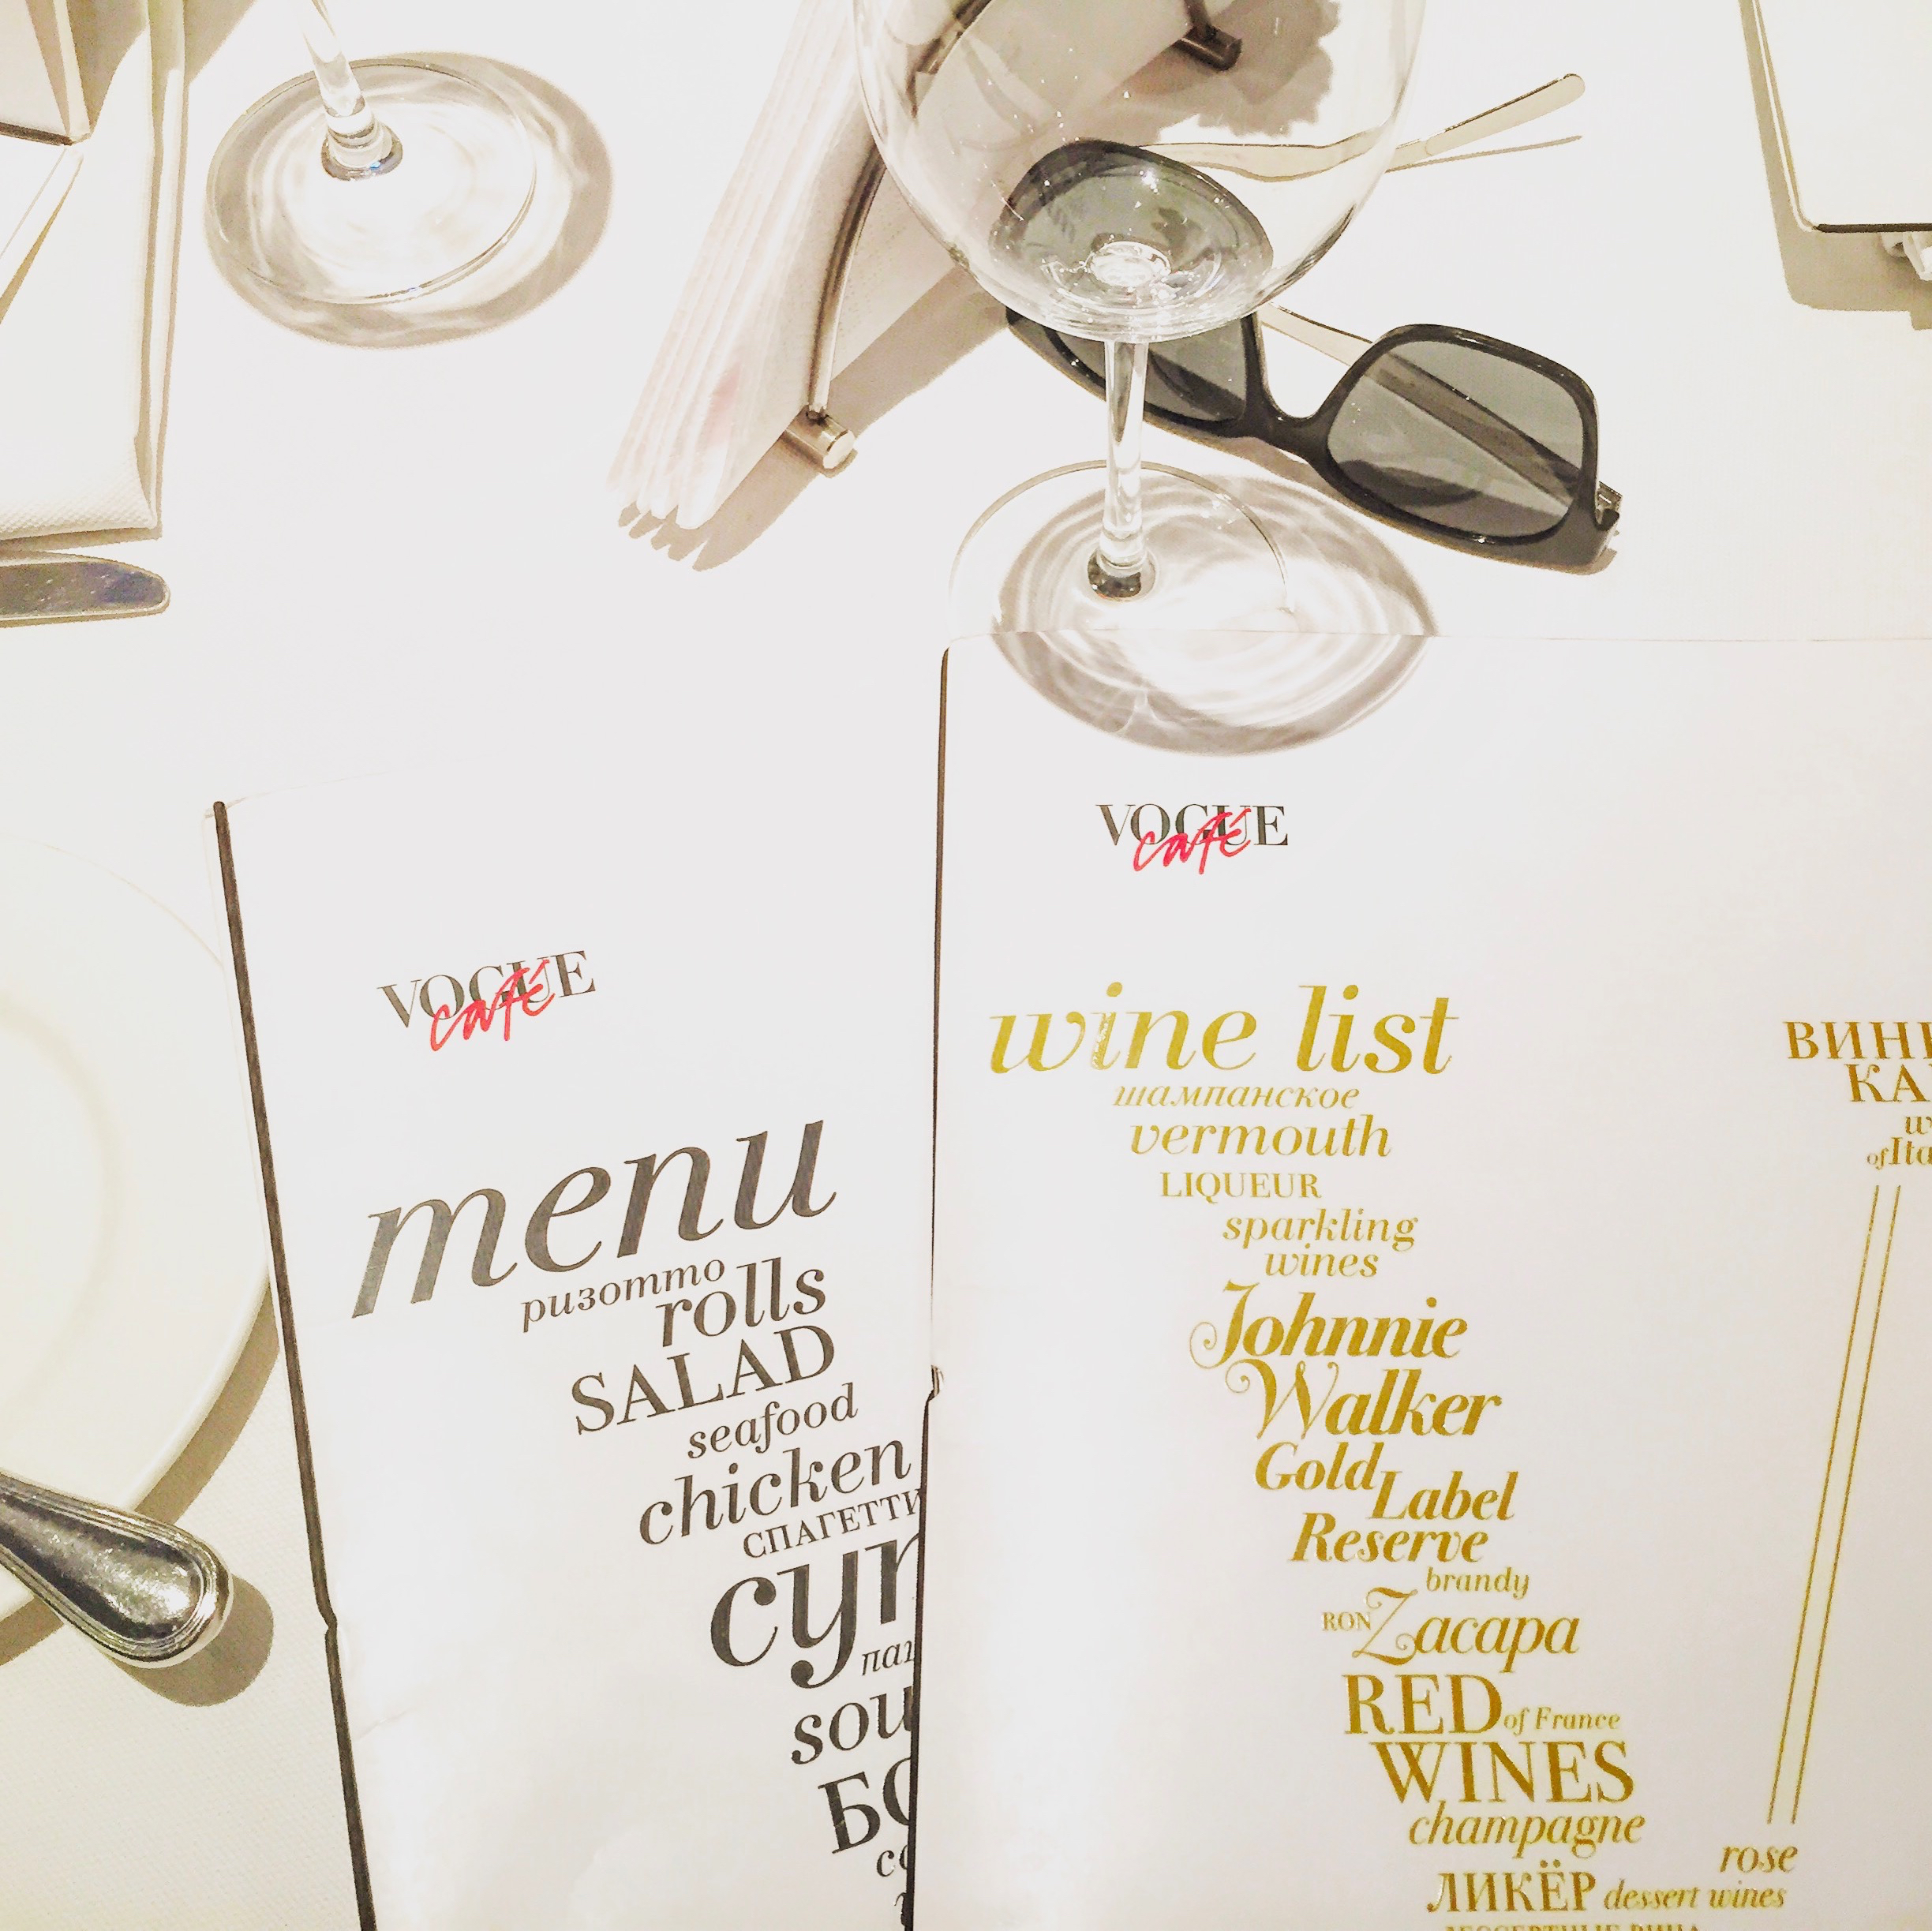 VOGUE
café
menu
ризотто
rolls
SALAD
seafood
chicken
СПАГЕТТИ
sou
VOGUE
café
wine list
шампанское
vermouth
LIQUEUR
sparkling
wines
Johnnie
Walker
Gold
Label
Reserve
brandy
RON Zacapa
RED of France
WINES
champagne
rose
ЛИКЁР dessert wines